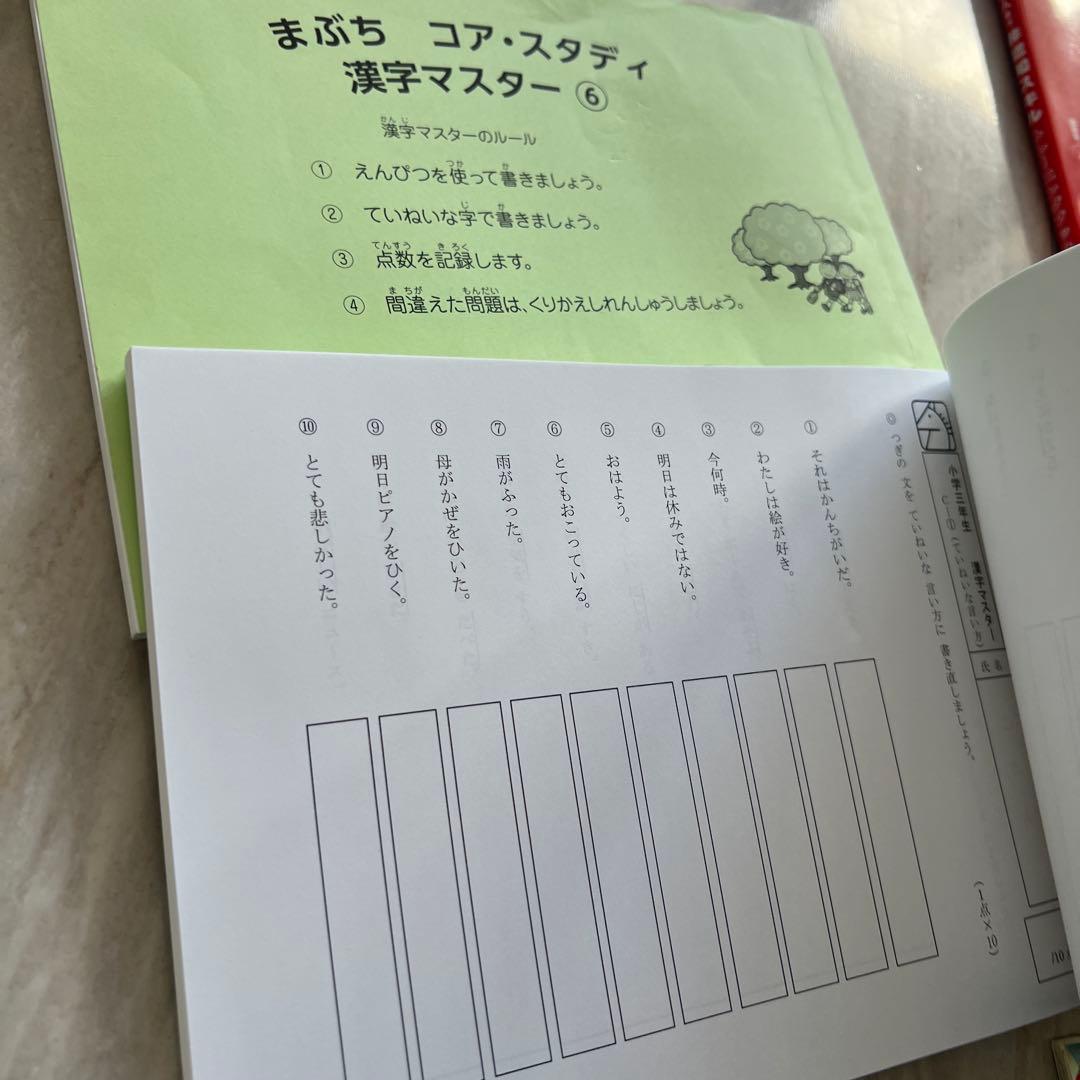 まぶち コア・スタディ
漢字マスター⑥
漢字マスターのルール
① えんぴつを使って書きましょう。
② ていねいな字で書きましょう。
③ 点数を記録します。
④ 間違えた問題は、くりかえしれんしゅうしましょう。
小学三年生 漢字マスター
C-①(ていねいな言い方)
氏名
/10
◎ つぎの 文を ていねいな 言い方に 書き直しましょう。
(1点×10)
① それはかんちがいだ。
② わたしは絵が好き。
③ 今何時。
④ 明日は休みではない。
⑤ おはよう。
⑥ とてもおこっている。
⑦ 雨がふった。
⑧ 母がかぜをひいた。
⑨ 明日ピアノをひく。
⑩ とても悲しかった。